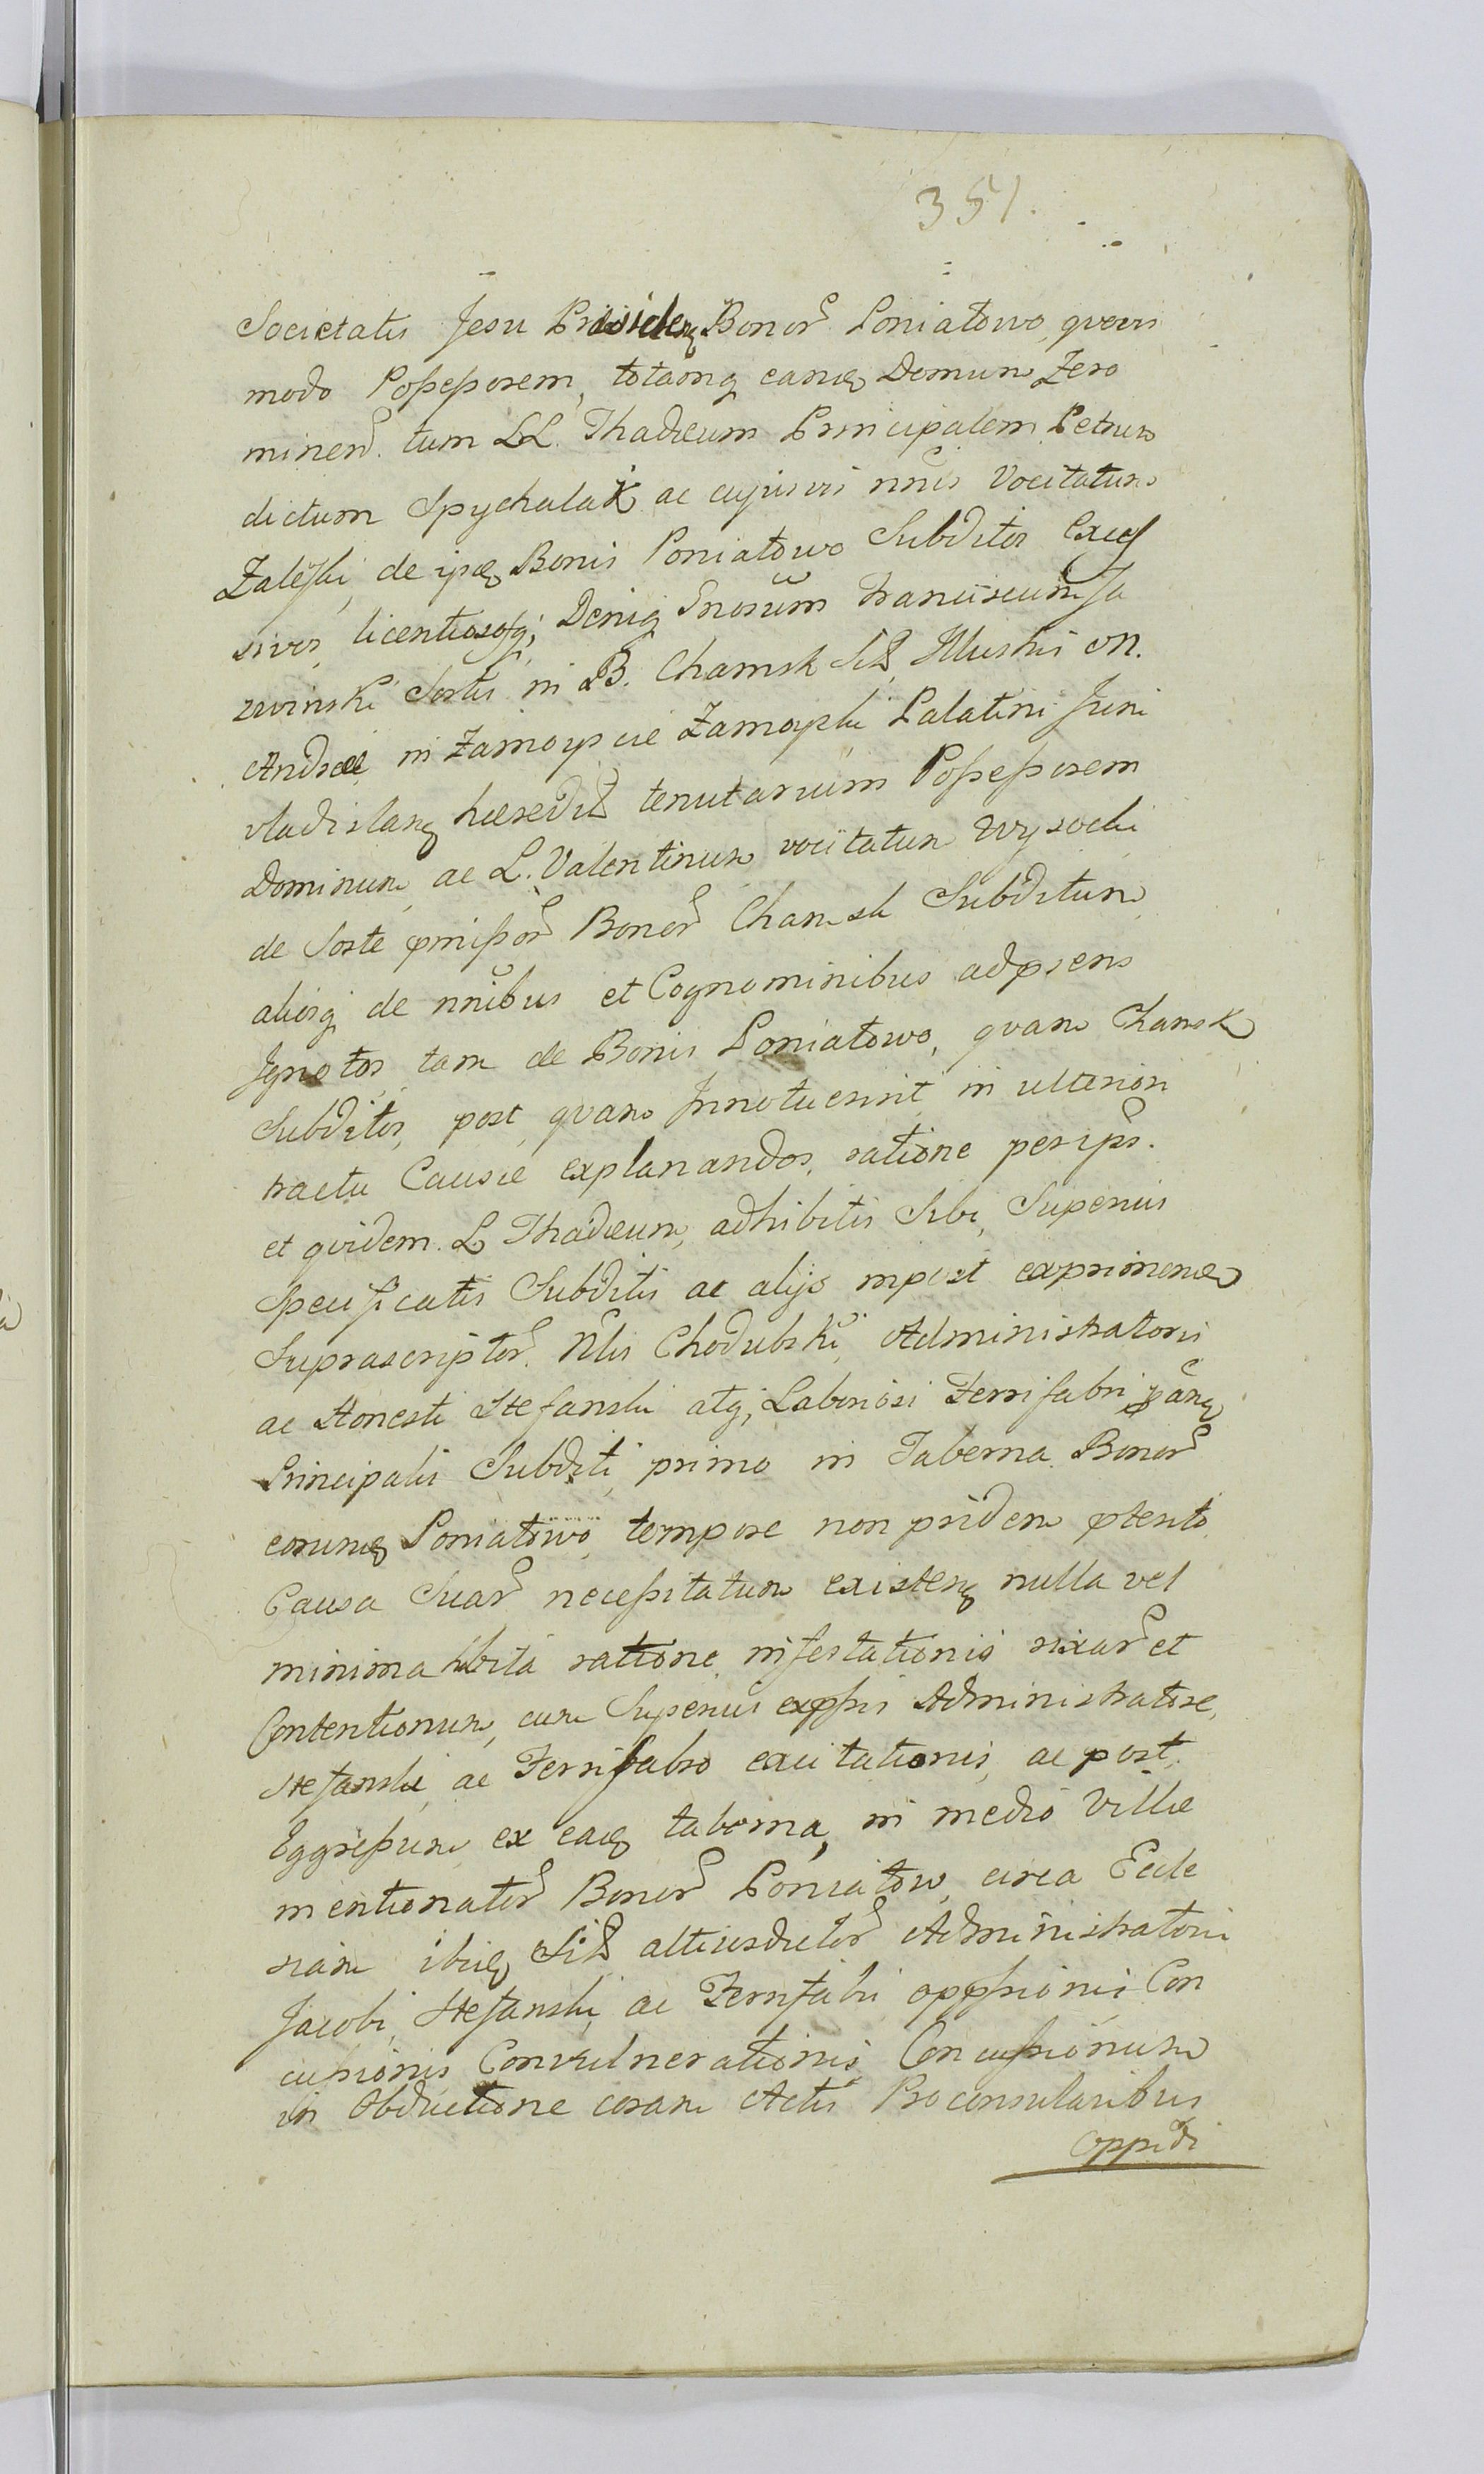 351.
Societatis Jesu Bonor Poniatowo, quovis
modo Possessorem, totamq eanq Domum Zero
minen. tum LL. Thadæum Principalem Petrum
dictum Spychalak ac cujusvis nnis Vocitatum
Zaleski, de ipsq Bonis Poniatowo Subditos Exces
sivos, licentiososq; Deniq Gnosum Franciscum Ja
zwinski Sortis in B. Chamsk Sił, Illustris M.
Andreæ in Zamoyscie Zamoyski Palatini Juni
vladislaq hæredit tenutarium Possessorem
Dominum, ac L. Valentinum vocitatum Wysocki
de Sorte pmissor Bonor Chamsk Subditum,
aliosq de nnibus et Cognominibus adpsens
Jgnotos, tam de Bonis Poniatowo, quam Chamsk
Subditos, post quam Jnnotuerint in ulteriori
tractu Causæ explanandos, ratione per ips.
et quidem. L Thadæum, adhibitis Sibi, Superius
Specificatis Subditis ac alijs inpost exprimend
Suprascriptor. Nlis Chodubski, Administratoris
ac Honesti Stefanski atq, Laboriosi Ferrifabri, panq
Principalis Subditi, primo in Taberna Bonor
eorunq Poniatowo, tempore non pridem pterito
Causa Suar necessitatum existenq nulla vel
minima hbita ratione infestationis rixar et
Contentionum, cum Superius exppssis Administratore,
Stefanski, ac Ferrifabro excitationis, ac post
Eggressum ex eaq taberna, in medio Villæ
mentionator Bonor Poniatow, circa Eccle
siam ibiq Sił altiusdictor Administratoris
Jacobi, Stefanski, ac Ferrifabri oppssionis Con
cussionis Convulnerationis, Concussionum
in Obductione coram Actis Proconsularibus
Oppidi